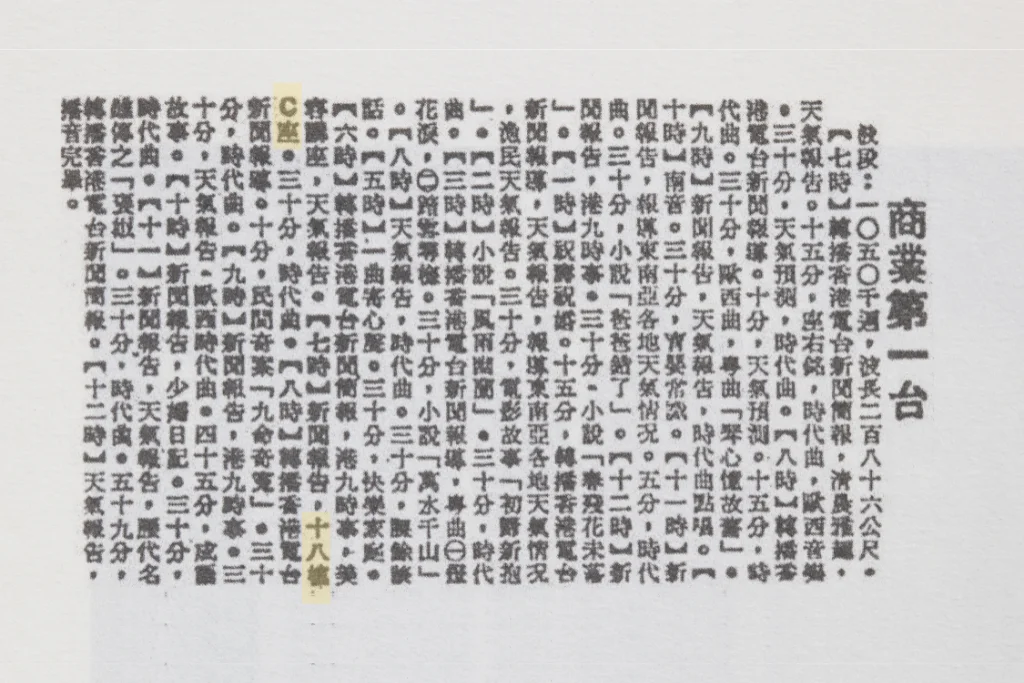 商業第一台
波段：一〇五〇千週，波長二百八十六公尺。
【七時】轉播香港電台新聞簡報，清晨雅麗，
天氣報告。十五分，座右銘，時代曲，歐西音樂
。三十分，天氣預測，時代曲。【八時】轉播香
港電台新聞報導。十分，天氣預測。十五分，時
代曲。三十分，歐西曲，粵曲「琴心憶故舊」。
【九時】新聞報告，天氣報告，時代曲點唱。【
十時】南音。三十分，育嬰常識。【十一時】新
聞報告，報導東南亞各地天氣情況。五分，時代
曲。三十分，小說「爸爸錯了」。【十二時】新
聞報告，港九時事。三十分，小說「春殘花未落
」。【一時】祝壽祝婚。十五分，轉播香港電台
新聞報導，天氣報告，報導東南亞各地天氣情況
，漁民天氣報告。三十分，電影故事「初爵新抱
」。【二時】小說「風雨幽蘭」。三十分，時代
曲。【三時】轉播香港電台新聞報導，粵曲㊀燈
花淚，㊁踏雪尋梅。三十分，小說「萬水千山」
。【八時】天氣報告，時代曲。三十分，醒餘談
話。【五時】一曲寄心聲。三十分，快樂家庭。
【六時】轉播香港電台新聞簡報，港九時事，美
容講座，天氣報告。【七時】新聞報告，十八樓
C座。三十分，時代曲。【八時】轉播香港電台
新聞報導。十分，民間奇案「九命奇寃」。三十
分，時代曲。【九時】新聞報告，港九時事。三
十分，天氣報告，歐西時代曲。四十五分，空
故事。【十時】新聞報告，少婦日記。三十分，
時代曲。【十一】新聞報告，天氣報告，歷代名
雄傳之「褒姒」。三十分，時代曲。五十九分，
轉播香港電台新聞簡報。【十二時】天氣報告，
播音完畢。